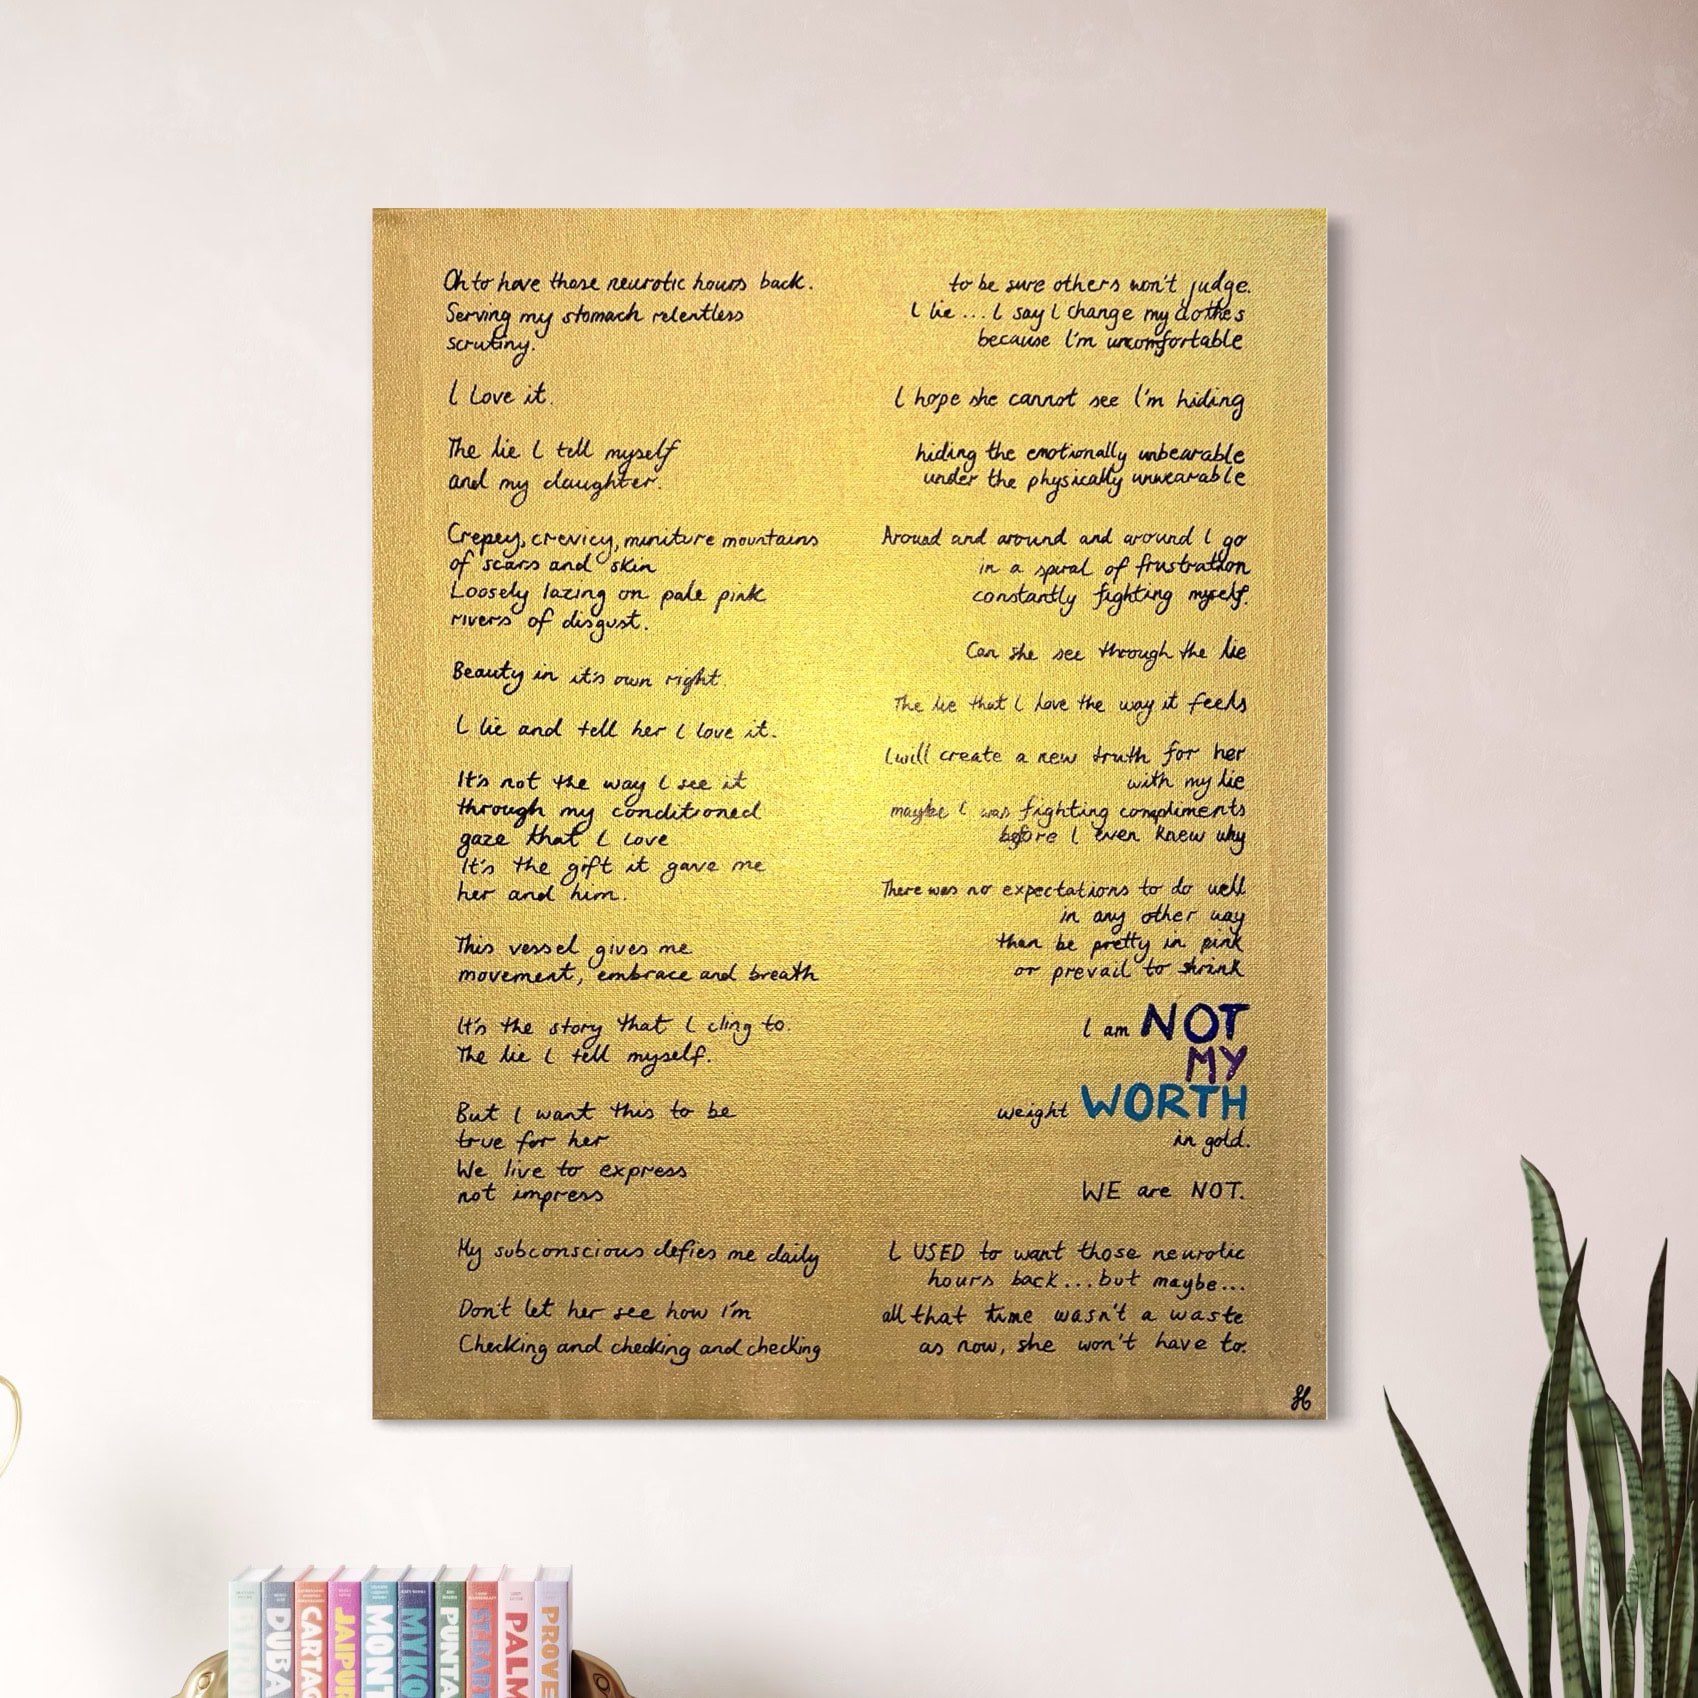 Oh to have those neurotic hours back.
Serving my stomach relentless
scrutiny.
I Love it.
The lie I tell myself
and my daughter.
Crepey, crevicy, miniture mountains
of scars and skin
Loosely lazing on pale pink
rivers of disgust.
Beauty in it's own right.
I lie and tell her I love it.
It's not the way I see it
through my conditioned
gaze that I love
It's the gift it gave me
her and him.
This vessel gives me
movement, embrace and breath
It's the story that I cling to.
The lie I tell myself.
But I want this to be
true for her
We live to express
not impress
My subconscious defies me daily
Don't let her see how i'm
Checking and checking and checking
to be sure others won't judge.
I lie... I say I change my clothes
because I'm uncomfortable
I hope she cannot see I'm hiding
hiding the emotionally unbearable
under the physically unwearable
Around and around and around I go
in a spiral of frustration
constantly fighting myself.
Can she see through the lie
The lie that I love the way it feels
I will create a new truth for her
with my lie
maybe I was fighting compliments
before I even knew why
There was no expectations to do well
in any other way
than be pretty in pink
or prevail to shrink
I am NOT
MY
weight WORTH
in gold.
WE are NOT.
I USED to want those neurotic
hours back...but maybe...
all that time wasn't a waste
as now, she won't have to.
DUBA
CARTAG
JAIPUR
MONT
MYKO
PUNTA
ST. BART
PALM
PROVE